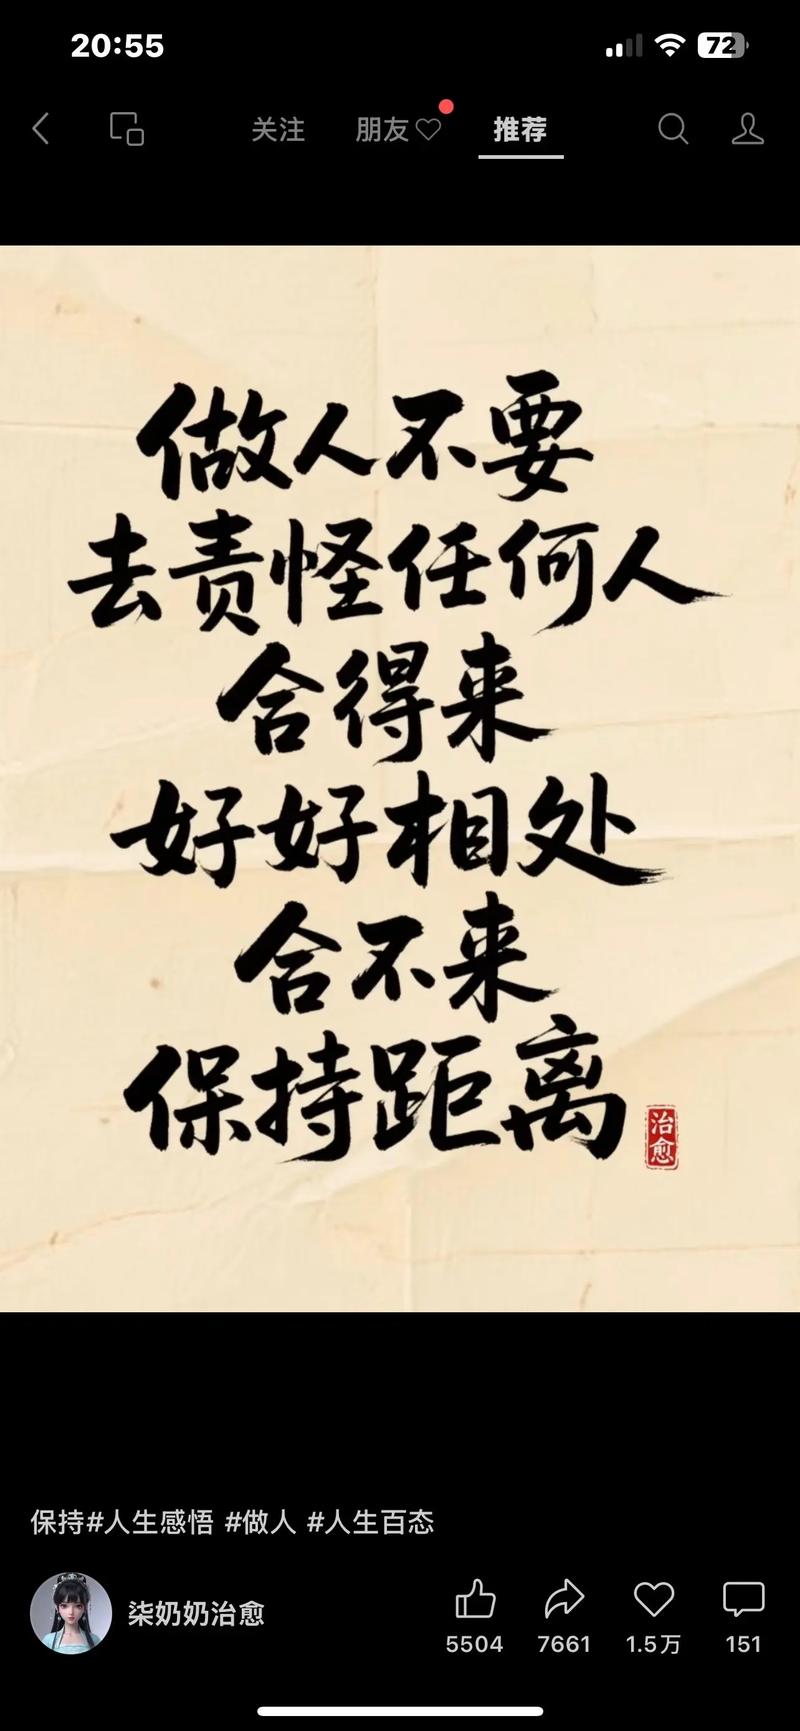 20:55
72
关注 朋友 推荐
做人不要
去责怪任何人
合得来
好好相处
合不来
保持距离
治愈
保持#人生感悟 #做人 #人生百态
柒奶奶治愈
5504 7661 1.5万 151